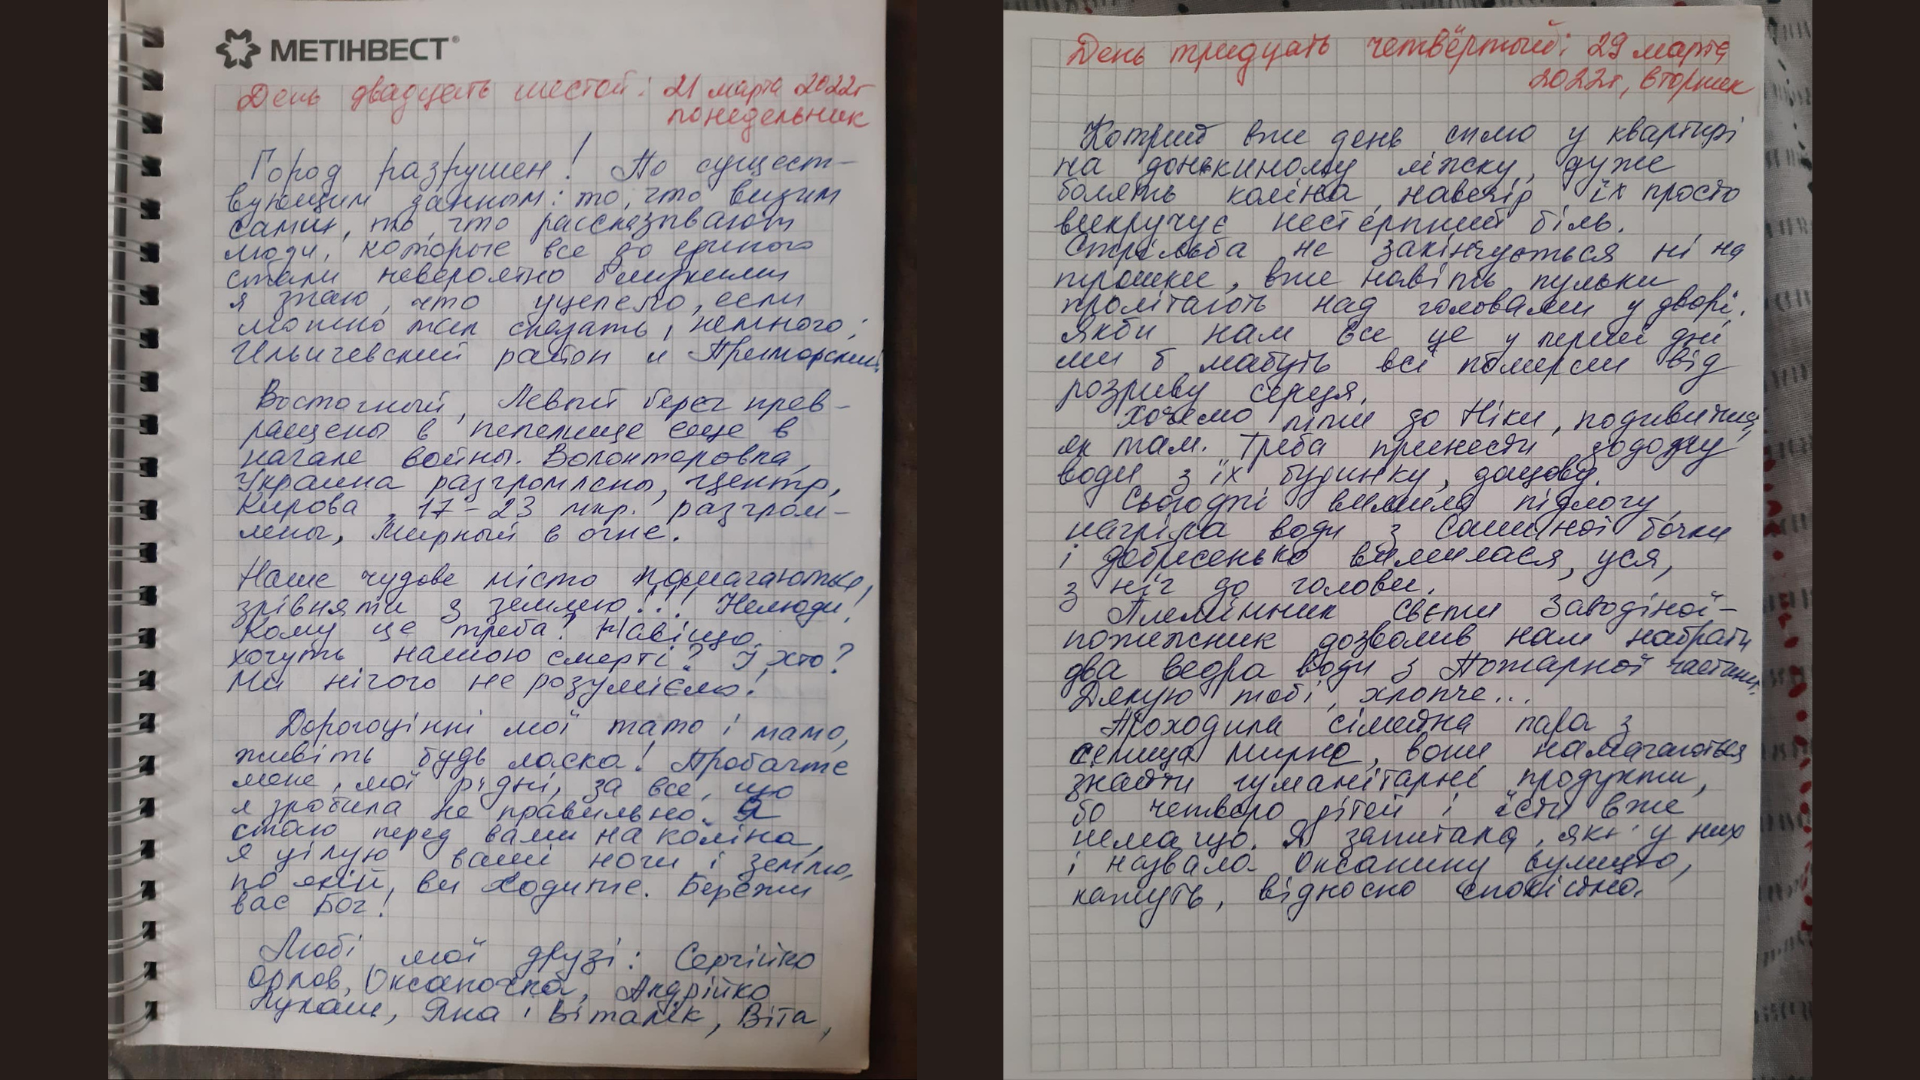 МЕТІНВЕСТ
День двадцать шестой: 21 марта 2022г
понедельник
Город разрушен! По сущест-
вующим данным: то, что видим
сами, то, что рассказывают
люди, которые все до единого
стали невероятно близкими
я знаю, что уцелело, если
можно так сказать, немного:
Ильичевский район и Приморский.
Восточный, Левый берег прев-
ращены в пепелище еще в
начале войны. Волонтеровка,
Украина разгромлены, Центр,
Кирова, 17-23 мкр. разгром-
лены, Мирный в огне.
Наше чудове місто
зрівняти з землею... Нелюди!
Кому це треба? Навіщо
хочуть нашою смерті? І хто?
Ми нічого не розуміємо!
Дорогоцінні мої тато і мамо,
живіть будь ласка! Пробачте
мене, мої рідні, за все, що
я зробила не правильно. Я
стаю перед вами на коліна,
я цілую ваші ноги і землю,
по якій, ви ходите. Бережи
вас Бог!
Любі мої друзі: Сергійко
Орлов, Оксаночка, Андрійко
Лукаш, Яна і Віталік, Віта,
День тридцать четвёртый: 29 марта
2022г, вторник
Котрий вже день сплю у квартирі
на донькиному ліжку, дуже
болять коліна, навечір їх просто
викручує нестерпний біль.
Стрільба не закінчується ні на
трошки, вже навіть пульки
пролітають над головами у дворі.
Якби нам все це у перші дні
ми б мабуть всі померли від
розриву серця.
Хочемо піти до Ніки, подивитись,
як там. Треба принести
води з їх будинку, дощової.
Сьогодні вимила підлогу,
нагріла води з Сашиної бочки
і добрисенько вимилася, уся,
з ніг до голови.
Племінник Свєти Заводіної-
пожежник дозволив нам набрати
два ведра води з Пожарної частини.
Дякую тобі, хлопче...
Проходила сімейна пара з
селища Мирне, вони намагаються
знайти гуманітарні продукти,
бо четверо дітей і їсти вже
нема що. Я запитала, як у них
і назвала Оксанину вулицю,
кажуть, відносно спокійно.